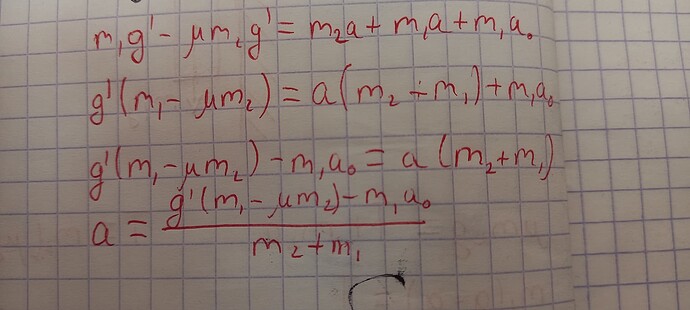 m₁g' - μm₂g' = m₂a + m₁a + m₁a₀
g'(m₁ - μm₂) = a(m₂ + m₁) + m₁a₀
g'(m₁ - μm₂) - m₁a₀ = a(m₂ + m₁)
a = \frac{g'(m₁ - μm₂) - m₁a₀}{m₂ + m₁}